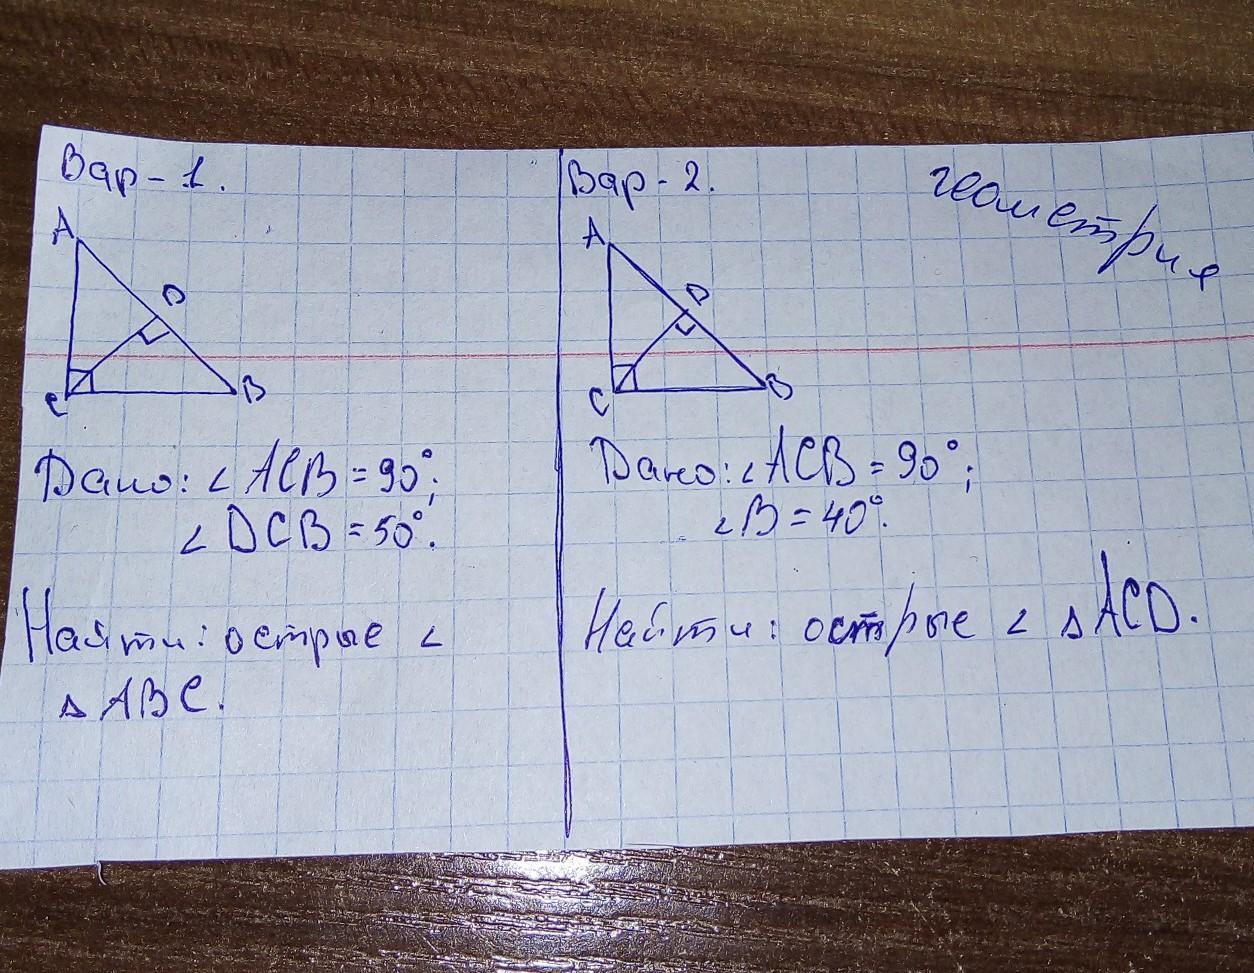 Вар - 1.
A
D
C
B
Дано: ∠ ACB = 90°;
∠ DCB = 50°.
Найти: острые ∠
△ ABC.
Вар - 2.
геометрия
A
D
C
B
Дано: ∠ ACB = 90°;
∠ B = 40°.
Найти: острые ∠ △ ACD.